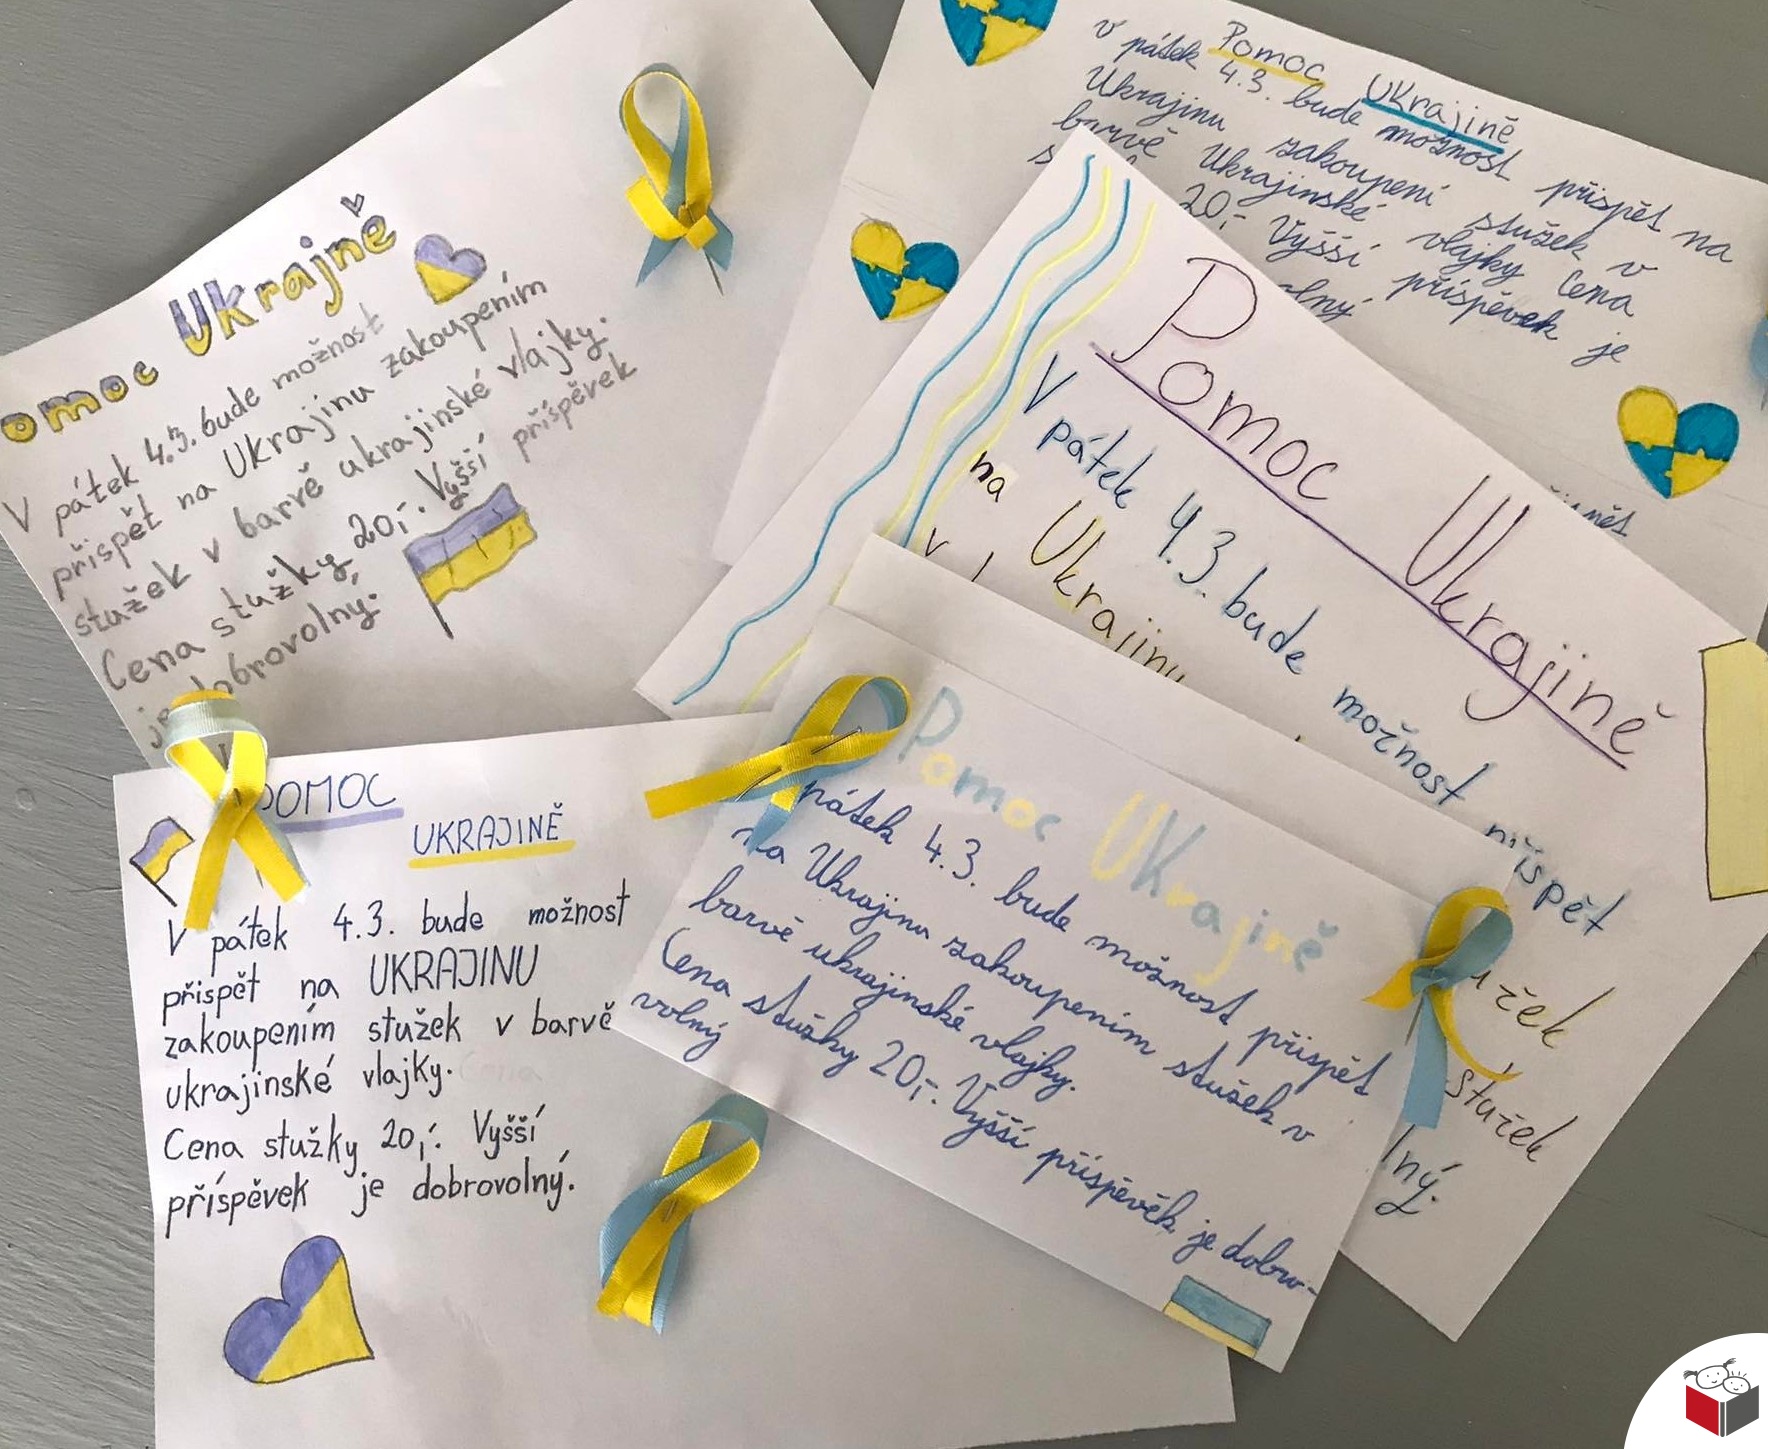 omoc Ukrajně
V pátek 4.3. bude možnost
přispět na Ukrajinu zakoupením
stužek v barvě ukrajinské vlajky.
Cena stužky 20,-. Vyšší příspěvek
je dobrovolný.
Pomoc Ukrajině
v pátek 4.3. bude možnost přispět na
Ukrajinu zakoupení stužek v
barvě Ukrajinské vlajky Cena
20,- Vyšší příspěvek je
olný
Pomoc Ukrajině
V pátek 4.3. bude možnost přispět
na Ukrajinu
užek
stužek
lný.
POMOC
UKRAJINĚ
V pátek 4.3. bude možnost
přispět na UKRAJINU
zakoupením stužek v barvě
ukrajinské vlajky.
Cena stužky 20,-. Vyšší
příspěvek je dobrovolný.
Pomoc Ukrajině
pátek 4.3. bude možnost přispět
na Ukrajinu zakoupením stužek v
barvě ukrajinské vlajky.
Cena stužky 20,-. Vyšší příspěvěk je dobro-
volný